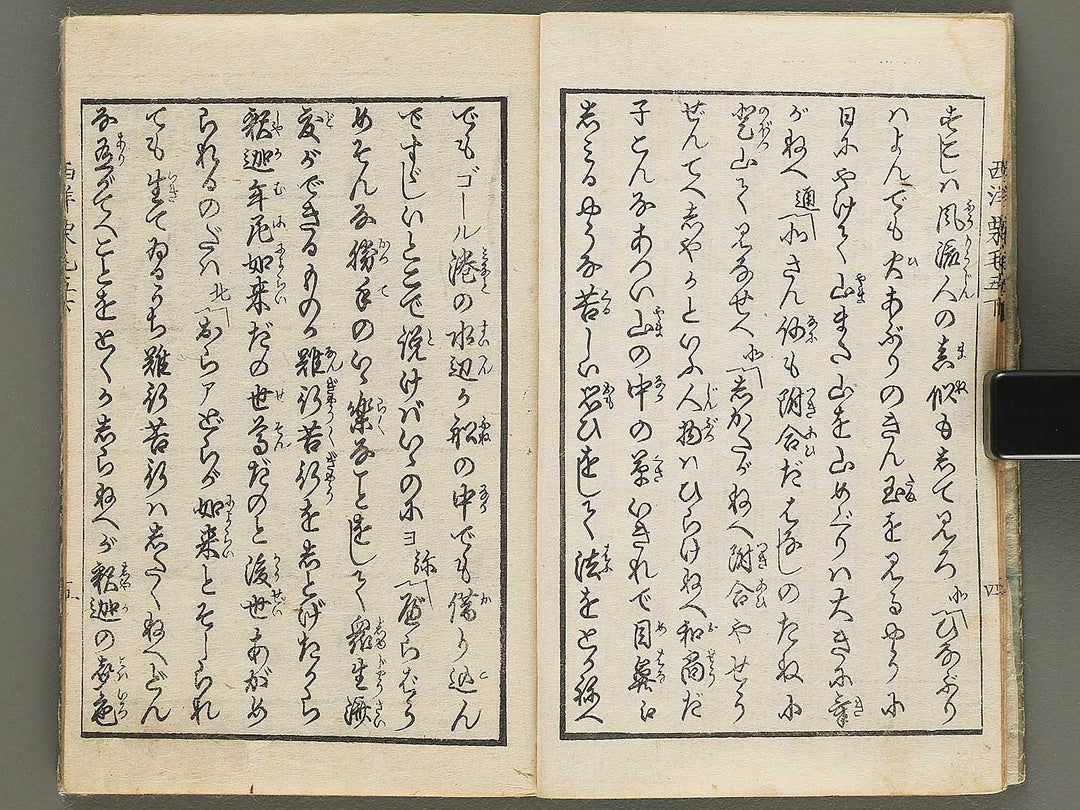 ハ風流人の真似も志て見ろ
ハよんでも火あぶりのきん玉を見るやうに
日にやけて山また山を山めぐりハ大きに幸
がねへ通さん何も附合だはなしのたねに
登山て見なせへ志かたがねへ附合やせう
ぜんてへ志やかといふ人物ハひらけねへ和尚だ
子こんなあつい山の中の草いきれで目鼻口
志みるやうな苦しい思ひをして法をとかねへ
でもゴール港の水辺か船の中でも借り込ん
ですゞしいとこで説けばいゝのにヨ弥だらはう
めそんな勝手のいゝ楽なことをして衆生済
度ができるものか難行苦行を志とげたから
釈迦牟尼如来だの世尊だのと後世あがめ
られるのだハ北おらアどらが如来とそしられ
ても生てゐるうち難行苦行ハ志たくねへどん
な有がてへことをとくか志らねへが釈迦の
四
五